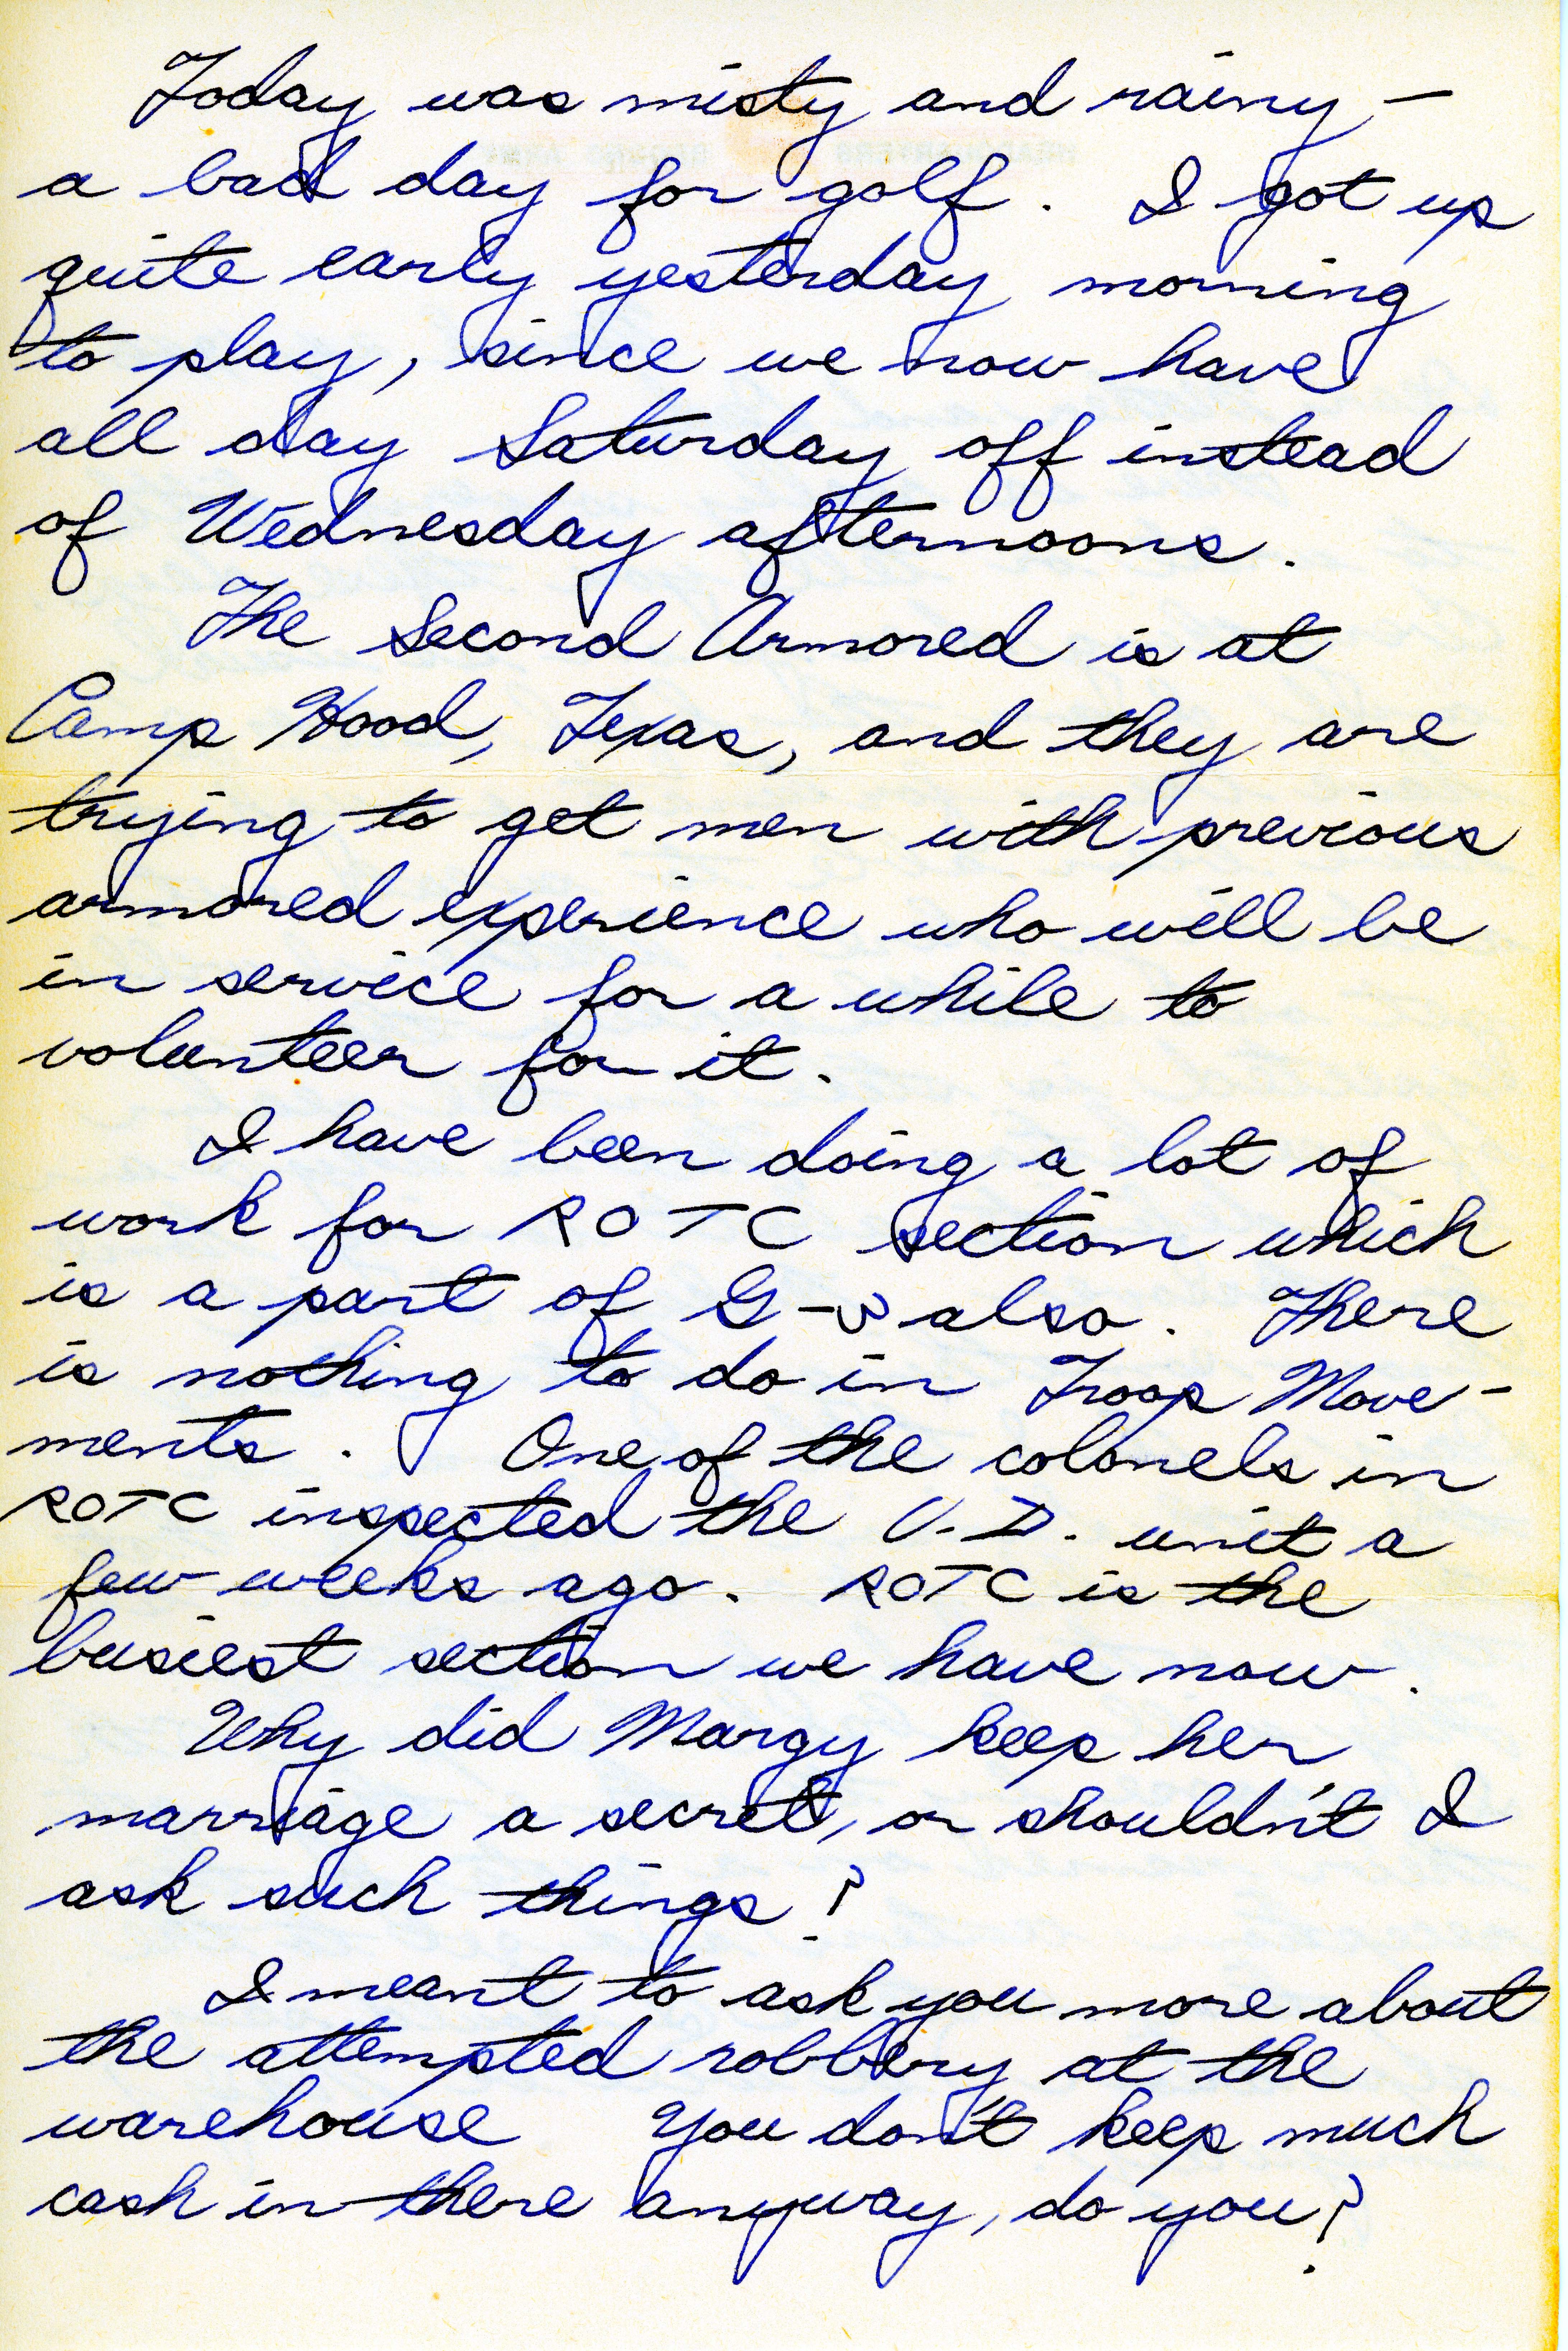 Today was misty and rainy –
a bad day for golf. I got up
quite early yesterday morning
to play, since we now have
all day Saturday off instead
of Wednesday afternoons.
The Second Armored is at
Camp Hood, Texas, and they are
trying to get men with previous
armored experience who will be
in service for a while to
volunteer for it.
I have been doing a lot of
work for ROTC section which
is a part of G-3 also. There
is nothing to do in Troop Move-
ments. One of the colonels in
ROTC inspected the U.D. unit a
few weeks ago. ROTC is the
busiest section we have now.
Why did Margy keep her
marriage a secret, or shouldn't I
ask such things?
I meant to ask you more about
the attempted robbery at the
warehouse You don't keep much
cash in there anyway, do you?